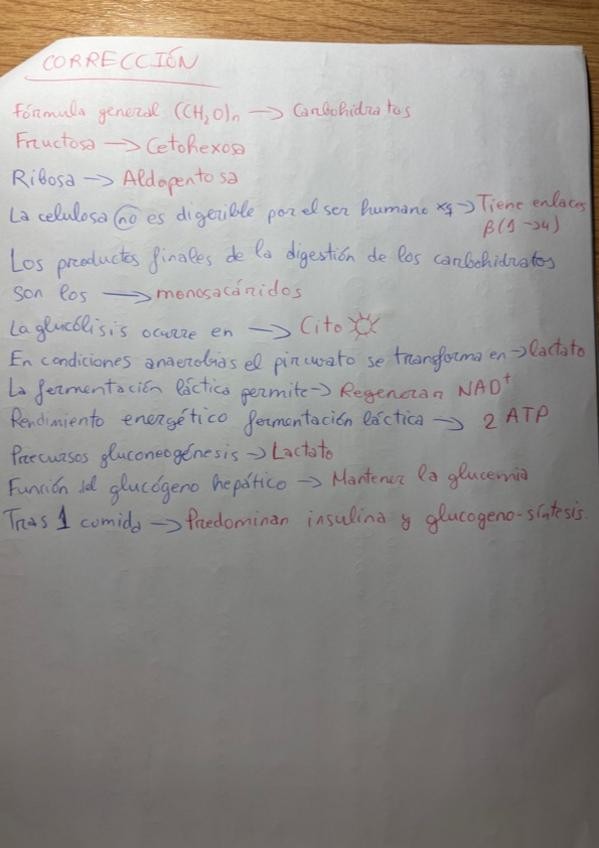 CORRECCIÓN
Fórmula general (CH₂O)n → Carbohidratos
Fructosa → Cetohexosa
Ribosa → Aldopentosa
La celulosa no es digerible por el ser humano xq → Tiene enlaces
β(1→4)
Los productos finales de la digestión de los carbohidratos
son los → monosacáridos
La glucólisis ocurre en → Cito
En condiciones anaerobias el piruvato se transforma en → lactato
La fermentación láctica permite → Regeneran NAD⁺
Rendimiento energético fermentación láctica → 2 ATP
Precursos gluconeogénesis → Lactato
Función del glucógeno hepático → Mantener la glucemia
Tras 1 comida → Predominan insulina y glucogeno-síntesis.